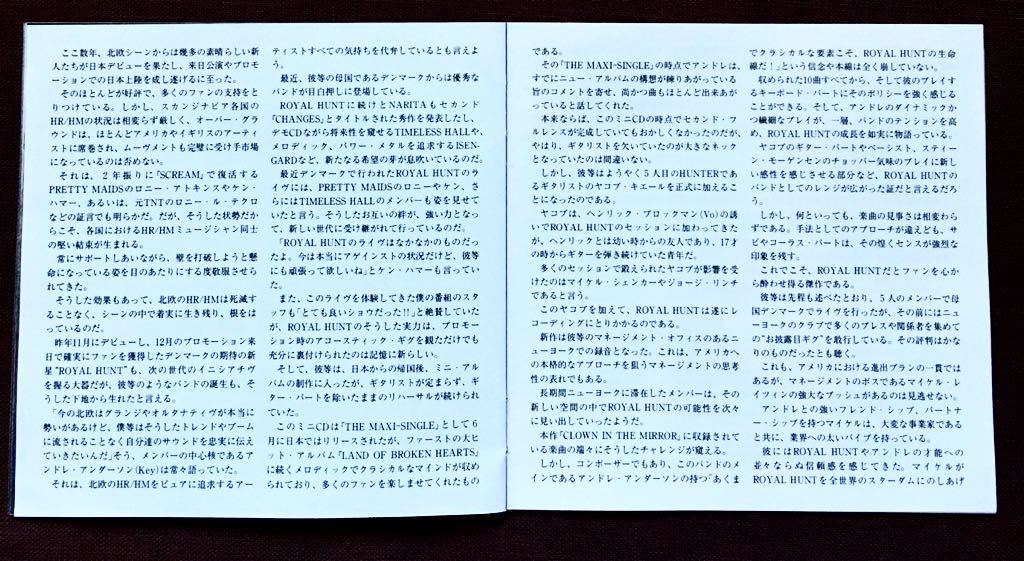 ここ数年、北欧シーンからは幾多の素晴らしい新
人たちが日本デビューを果たし、来日公演やプロモ
ーションでの日本上陸を成し遂げるに至った。
そのほとんどが好評で、多くのファンの支持をと
りつけている。しかし、スカンジナビア各国の
HR/HMの状況は相変らず厳しく、オーバー・グラ
ウンドは、ほとんどアメリカやイギリスのアーティ
ストに席巻され、ムーヴメントも完璧に受け手市場
になっているのは否めない。
それは、2年振りに「SCREAM」で復活する
PRETTY MAIDSのロニー・アトキンスやケン・
ハマー、あるいは、元TNTのロニー・ル・テクロ
などの証言でも明らかだ。だが、そうした状勢だか
らこそ、各国におけるHR/HMミュージシャン同士
の堅い結束が生まれる。
常にサポートしあいながら、壁を打破しようと懸
命になっている姿を目のあたりにする度敬服させら
れてきた。
そうした効果もあって、北欧のHR/HMは死滅す
ることなく、シーンの中で着実に生き残り、根をは
っているのだ。
昨年11月にデビューし、12月のプロモーション来
日で確実にファンを獲得したデンマークの期待の新
星"ROYAL HUNT"も、次の世代のイニシアチヴ
を握る大器だが、彼等のようなバンドの誕生も、そ
うした下地から生れたと言える。
「今の北欧はグランジやオルタナティヴが本当に
勢いがあるけど、僕等はそうしたトレンドやブーム
に流されることなく自分達のサウンドを忠実に伝え
ていきたいんだ」そう、メンバーの中心核であるア
ンドレ・アンダーソン(Key)は常々語っていた。
それは、北欧のHR/HMをピュアに追求するアー
ティストすべての気持ちを代弁しているとも言えよ
う。
最近、彼等の母国であるデンマークからは優秀な
バンドが目白押しに登場している。
ROYAL HUNTに続けとNARITAもセカンド
「CHANGES」とタイトルされた秀作を発表したし、
デモCDながら将来性を窺せるTIMELESS HALLや、
メロディック、パワー・メタルを追求するISEN-
GARDなど、新たなる希望の芽が息吹いているのだ。
最近デンマークで行われたROYAL HUNTのラ
イヴには、PRETTY MAIDSのロニーやケン、さ
らにはTIMELESS HALLのメンバーも姿を見せて
いたと言う。そうしたお互いの絆が、強い力となっ
て、新しい世代に受け継がれて行っているのだ。
「ROYAL HUNTのライヴはなかなかのものだっ
たよ。今は本当にアゲインストの状況だけど、彼等
にも頑張って欲しいね」とケン・ハマーも言ってい
た。
また、このライヴを体験してきた僕の番組のスタ
ッフも「とても良いショウだった!!」と絶賛していた
が、ROYAL HUNTのそうした実力は、プロモー
ション時のアコースティック・ギグを観ただけでも
充分に裏付けられたのは記憶に新しい。
そして、彼等は、日本からの帰国後、ミニ・アル
バムの制作に入ったが、ギタリストが定まらず、ギ
ター・パートを除いたままのリハーサルが続けられ
ていた。
このミニCDは「THE MAXI-SINGLE」として6
月に日本ではリリースされたが、ファーストの大ヒ
ット・アルバム「LAND OF BROKEN HEARTS」
に続くメロディックでクラシカルなマインドが収め
られており、多くのファンを楽しませてくれたもの
である。
その「THE MAXI-SINGLE」の時点でアンドレは、
すでにニュー・アルバムの構想が練りあがっている
旨のコメントを寄せ、尚かつ曲もほとんど出来あが
っていると話してくれた。
本来ならば、このミニCDの時点でセカンド・フ
ルレンスが完成していてもおかしくなかったのだが、
やはり、ギタリストを欠いていたのが大きなネック
となっていたのは間違いない。
しかし、彼等はようやく5人目のHUNTERであ
るギタリストのヤコブ・キエールを正式に加えるこ
とになったのである。
ヤコブは、ヘンリック・ブロックマン(Vo)の誘い
でROYAL HUNTのセッションに加わってきた
が、ヘンリックとは幼い時からの友人であり、17才
の時からギターを弾き続けていた青年だ。
多くのセッションで鍛えられたヤコブが影響を受
けたのはマイケル・シェンカーやジョージ・リンチ
であると言う。
このヤコブを加えて、ROYAL HUNTは遂にレ
コーディングにとりかかるのである。
新作は彼等のマネージメント・オフィスのあるニ
ューヨークでの録音となった。これは、アメリカへ
の本格的なアプローチを狙うマネージメントの思考
性の表れでもある。
長期間ニューヨークに滞在したメンバーは、その
新しい空間の中でROYAL HUNTの可能性を次々
に見い出していったようだ。
本作「CLOWN IN THE MIRROR」に収録されて
いる楽曲の端々にそうしたチャレンジが窺える。
しかし、コンポーザーでもあり、このバンドのメ
インであるアンドレ・アンダーソンの持つ「あくま
でクラシカルな要素こそ、ROYAL HUNTの生命
線だ!」という信念や本線は全く崩していない。
収められた10曲すべてから、そして彼のプレイす
るキーボード・パートにそのポリシーを強く感じる
ことができる。そして、アンドレのダイナミックか
つ繊細なプレイが、一層、バンドのテンションを高
め、ROYAL HUNTの成長を如実に物語っている。
ヤコブのギター・パートやベーシスト、スティー
ン・モーゲンセンのチョッパー気味のプレイに新し
い感性を感じさせる部分など、ROYAL HUNTの
バンドとしてのレンジが広がった証だと言えるだろ
う。
しかし、何といっても、楽曲の見事さは相変わら
ずである。手法としてのアプローチが違えども、サ
ビやコーラス・パートは、その煌くセンスが強烈な
印象を残す。
これでこそ、ROYAL HUNTだとファンを心か
ら酔わせ得る傑作である。
彼等は先程も述べたとおり、5人のメンバーで母
国デンマークでライヴを行ったが、その前にはニュ
ーヨークのクラブで多くのプレスや関係者を集めて
の"お披露目ギグ"を敢行している。その評判はかな
りのものだったとも聴く。
これも、アメリカにおける進出プランの一貫では
あるが、マネージメントのボスであるマイケル・レ
イフィンの強大なプッシュがあるのは見逃せない。
アンドレとの強いフレンド・シップ、パートナ
ー・シップを持つマイケルは、大変な事業家である
と共に、業界への太いパイプを持っている。
彼にはROYAL HUNTやアンドレの才能への
並々ならぬ信頼感を感じてきた。マイケルが
ROYAL HUNTを全世界のスターダムにのしあげ